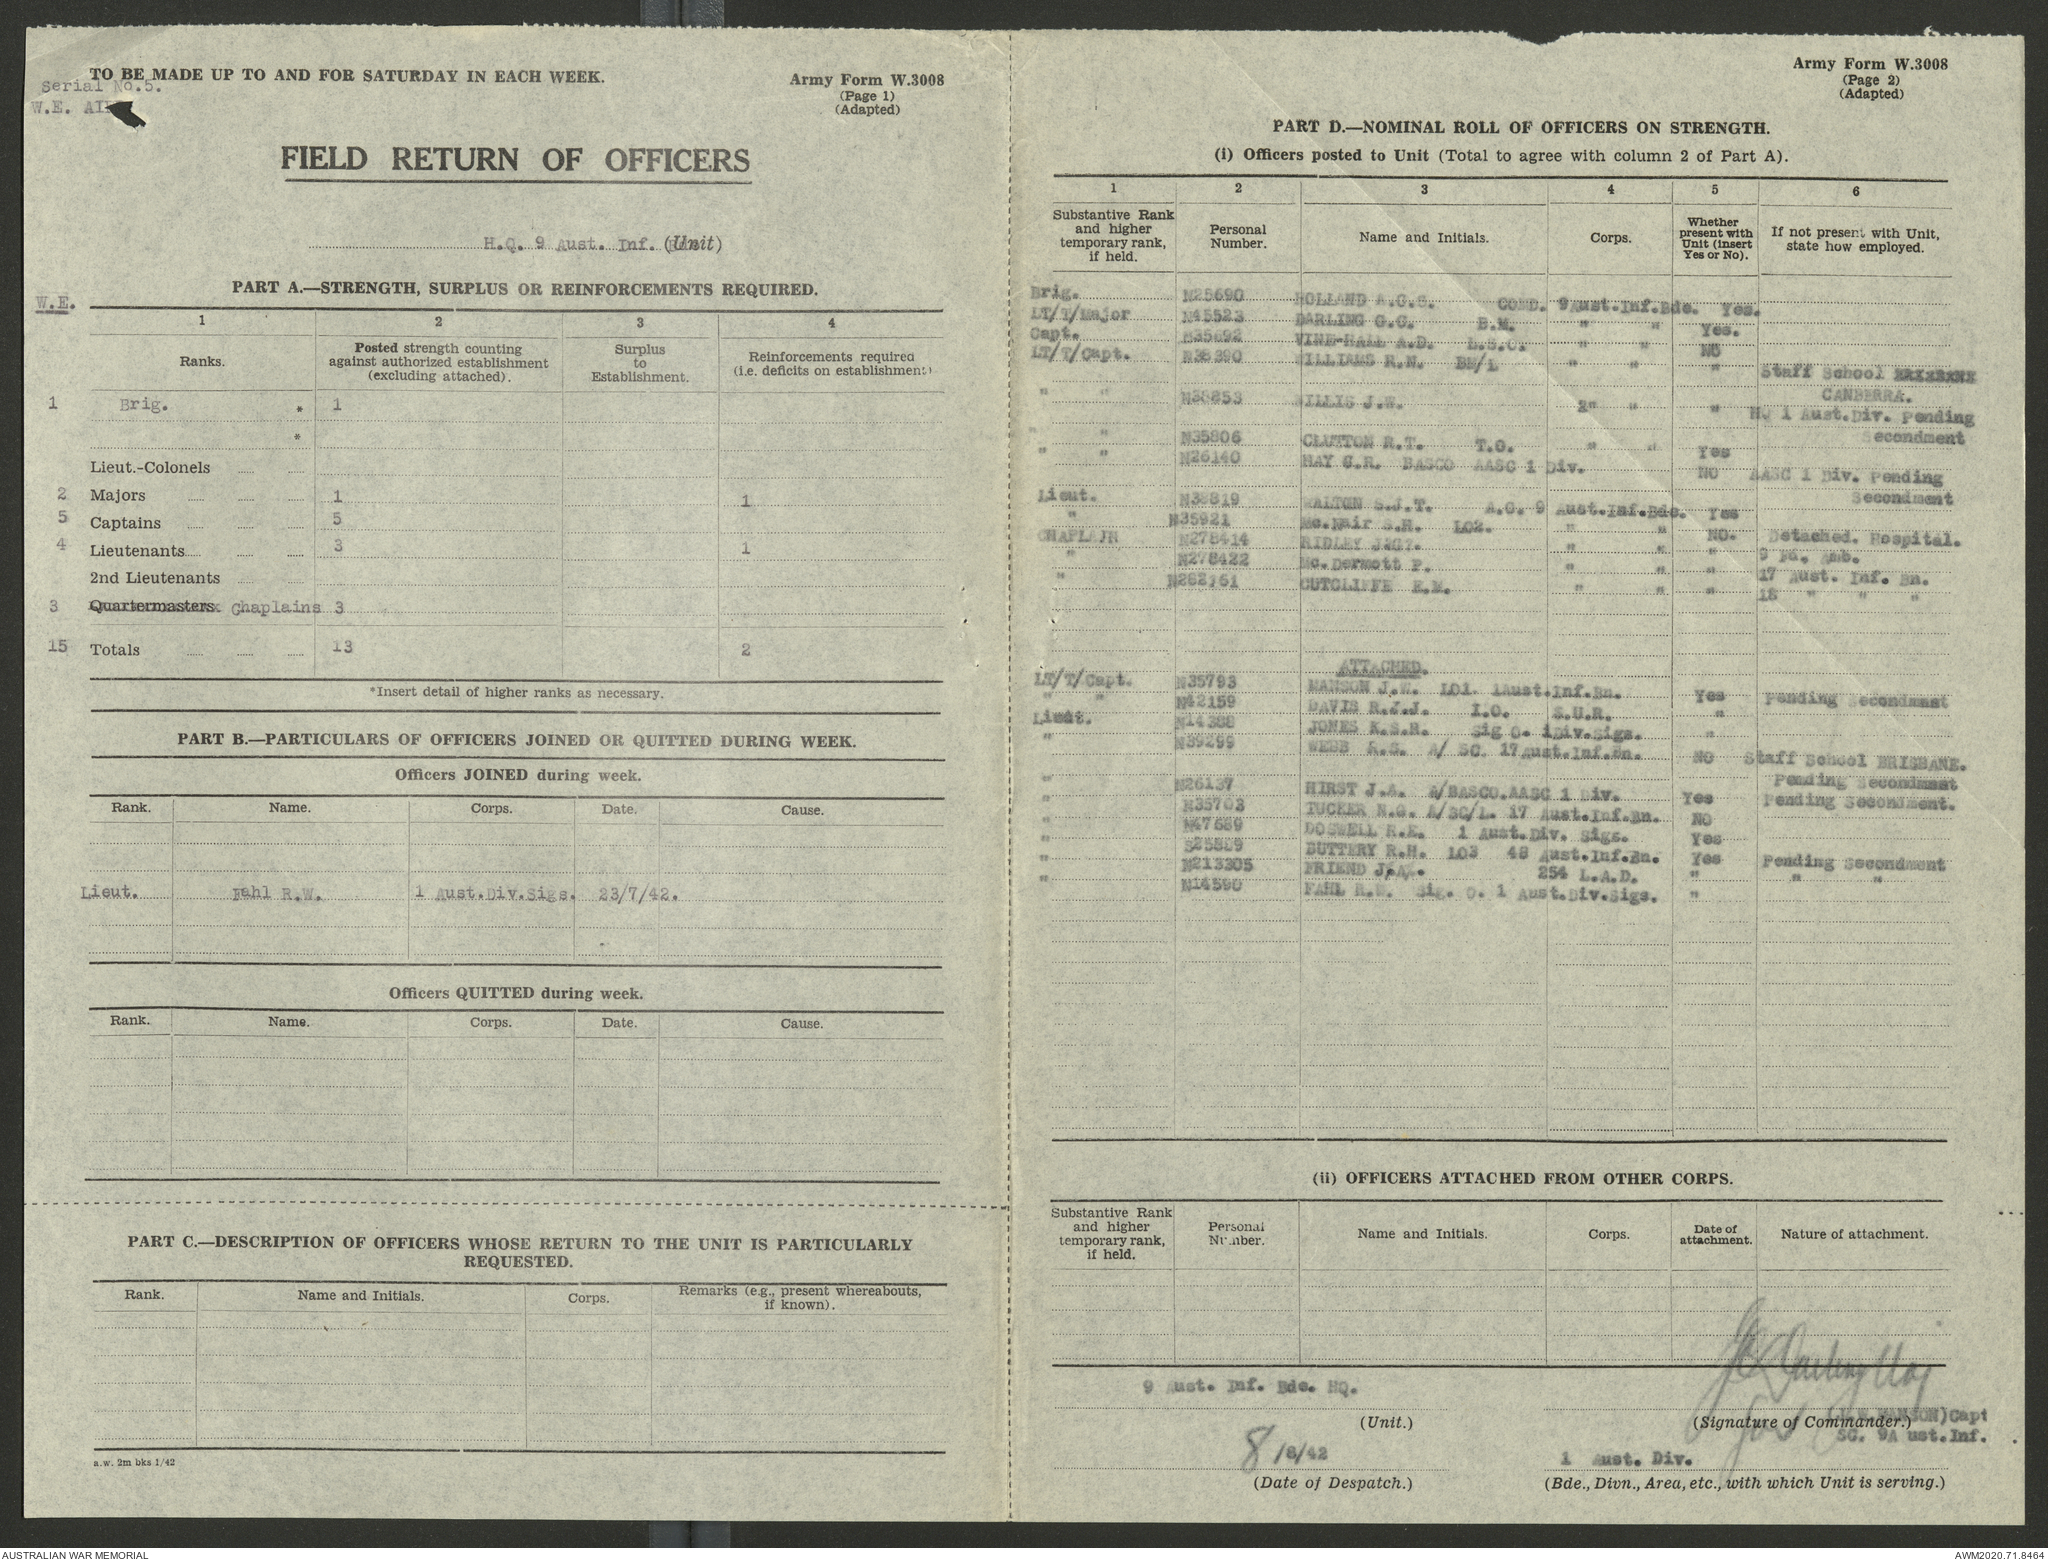 TO BE MADE UP TO AND FOR SATURDAY IN EACH WEEK.
Serial No.5.
W.E.
Army Form W.3008
(Page 1)
(Adapted)
FIELD RETURN OF OFFICERS
H.Q. 9 Aust. Inf. (Unit)
PART A.—STRENGTH, SURPLUS OR REINFORCEMENTS REQUIRED.
W.E.
1 2 3 4
Ranks. Posted strength counting against authorized establishment (excluding attached). Surplus to Establishment. Reinforcements required (i.e. deficits on establishment)
1 Brig. * 1
*
Lieut.-Colonels
2 Majors 1 1
5 Captains 5
4 Lieutenants 3 1
2nd Lieutenants
3 Quartermasters Chaplains 3
15 Totals 13 2
*Insert detail of higher ranks as necessary.
PART B.—PARTICULARS OF OFFICERS JOINED OR QUITTED DURING WEEK.
Officers JOINED during week.
Rank. Name. Corps. Date. Cause.
Lieut. Fahl R.W. 1 Aust.Div.Sigs. 23/7/42.
Officers QUITTED during week.
Rank. Name. Corps. Date. Cause.
PART C.—DESCRIPTION OF OFFICERS WHOSE RETURN TO THE UNIT IS PARTICULARLY
REQUESTED.
Rank. Name and Initials. Corps. Remarks (e.g., present whereabouts, if known).
a.w. 2m bks 1/42
Army Form W.3008
(Page 2)
(Adapted)
PART D.—NOMINAL ROLL OF OFFICERS ON STRENGTH.
(i) Officers posted to Unit (Total to agree with column 2 of Part A).
1 2 3 4 5 6
Substantive Rank and higher temporary rank, if held. Personal Number. Name and Initials. Corps. Whether present with Unit (insert Yes or No). If not present with Unit, state how employed.
Brig. N25690 HOLLAND A.C.S. COMD. 9Aust.Inf.Bde. Yes.
LT/T/Major N45523 DARLING G.C. B.M. " " Yes.
Capt. N35692 VINE-HALL A.D. L.S.C. " " NO
LT/T/Capt. N38390 WILLIAMS R.N. BM/L " " " Staff School BRISBANE
CANBERRA.
" " N38853 WILLIS J.W. " " " HQ 1 Aust.Div. Pending
Secondment
" " N35806 CLUTTON R.T. T.O. " " Yes
" " N26140 HAY S.R. BASCO AASC 1 Div. NO AASC 1 Div. Pending
Secondment
Lieut. N38819 WALTON S.J.T. A.C. 9 Aust.Inf.Bde. Yes
" N35921 Mc.Nair S.H. LO2. " " NO. Detached. Hospital.
CHAPLAIN N278414 RIDLEY " " " 9 Fd. Amb.
" N278422 Mc.Dermott P. " " " 17 Aust. Inf. Bn.
" CUTCLIFFE E.M. " " " 18 " " "
ATTACHED.
LT/T/Capt. N35793 MANSON J.W. LO1. 1Aust.Inf.Bn. Yes Pending Secondment
" " N42159 DAVIS R.J.J. I.O. S.U.R. "
Lieut. N14388 JONES K.S.H. Sig O. 1Div.Sigs. "
" N39299 WEBB K.G. A/ SC. 17Aust.Inf.Bn. NO Staff School BRISBANE.
Pending Secondment
" N26137 HIRST J.A. A/BASCO.AASC 1 Div. Yes Pending Secondment.
" N35703 TUCKER N.G. A/SC/L. 17 Aust.Inf.Bn. NO
" N47689 DOSWELL R.E. 1 Aust.Div. Sigs. Yes
" BUTTERY R.H. LO3 48 Aust.Inf.Bn. Yes Pending Secondment
" N213305 FRIEND 254 L.A.D. " " "
" N14590 FAHL R.W. Sig. O. 1 Aust.Div.Sigs. "
(ii) OFFICERS ATTACHED FROM OTHER CORPS.
Substantive Rank and higher temporary rank, if held. Personal Number. Name and Initials. Corps. Date of attachment. Nature of attachment.
9 Aust. Inf. Bde. HQ.
(Unit.)
Darling Maj
(Signature of Commander.)
(J.W. MANSON)Capt
SC. 9A ust.Inf.
8/8/42
(Date of Despatch.)
1 Aust. Div.
(Bde., Divn., Area, etc., with which Unit is serving.)
AUSTRALIAN WAR MEMORIAL
AWM2020.71.8464